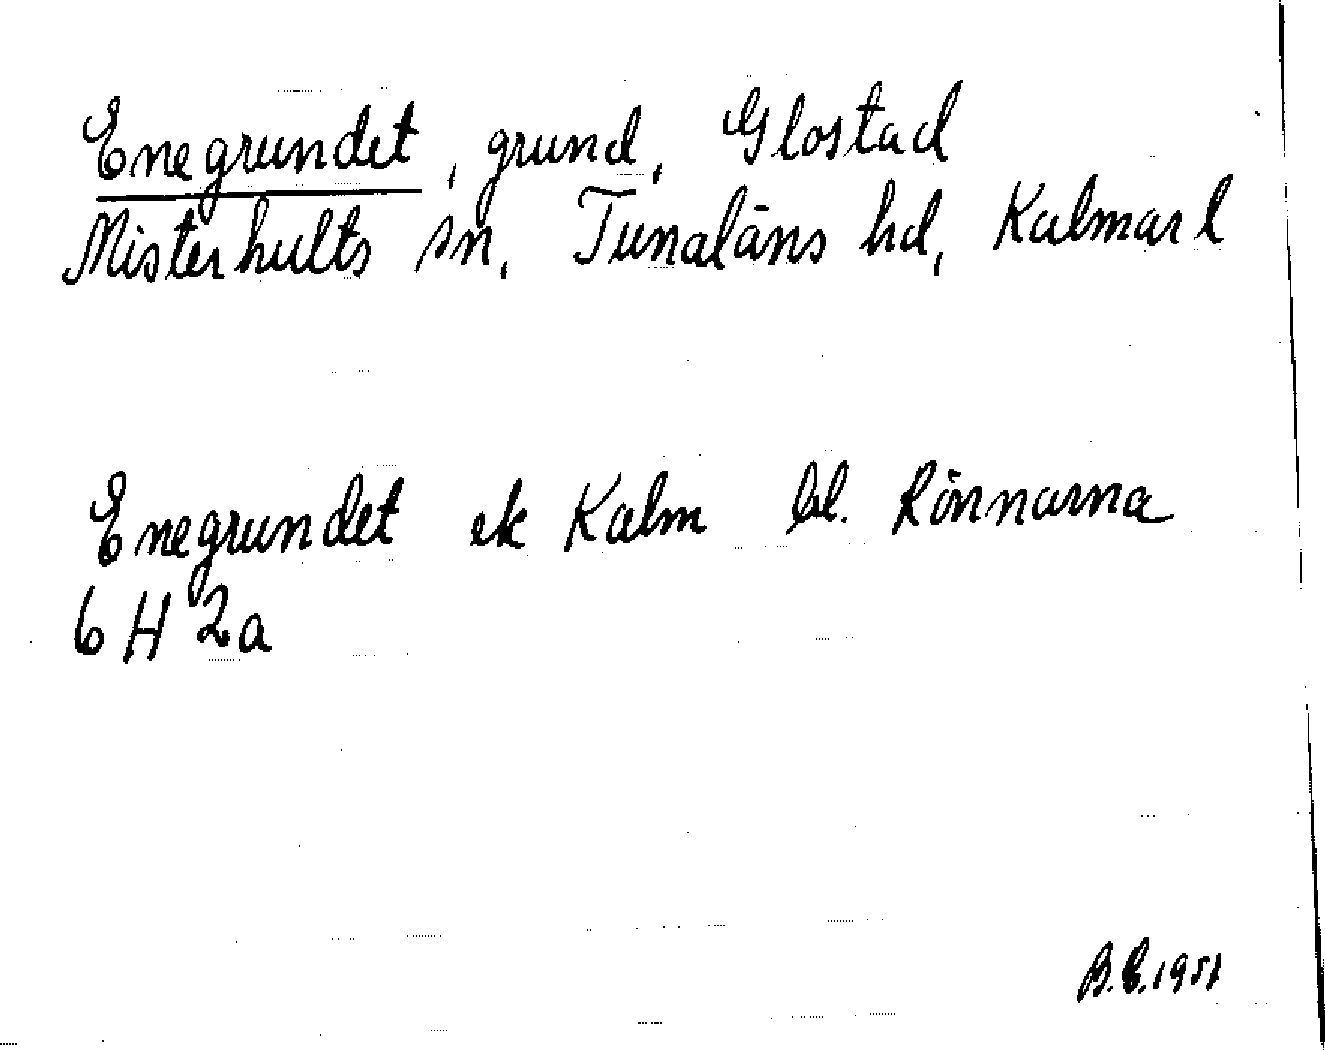 Enegrundet, grund, Glostad
Misterhults sn, Tunaläns hd, Kalmar l
Enegrundet ek Kalm bl. Rönnarna
6 H 2a
B.E. 1951